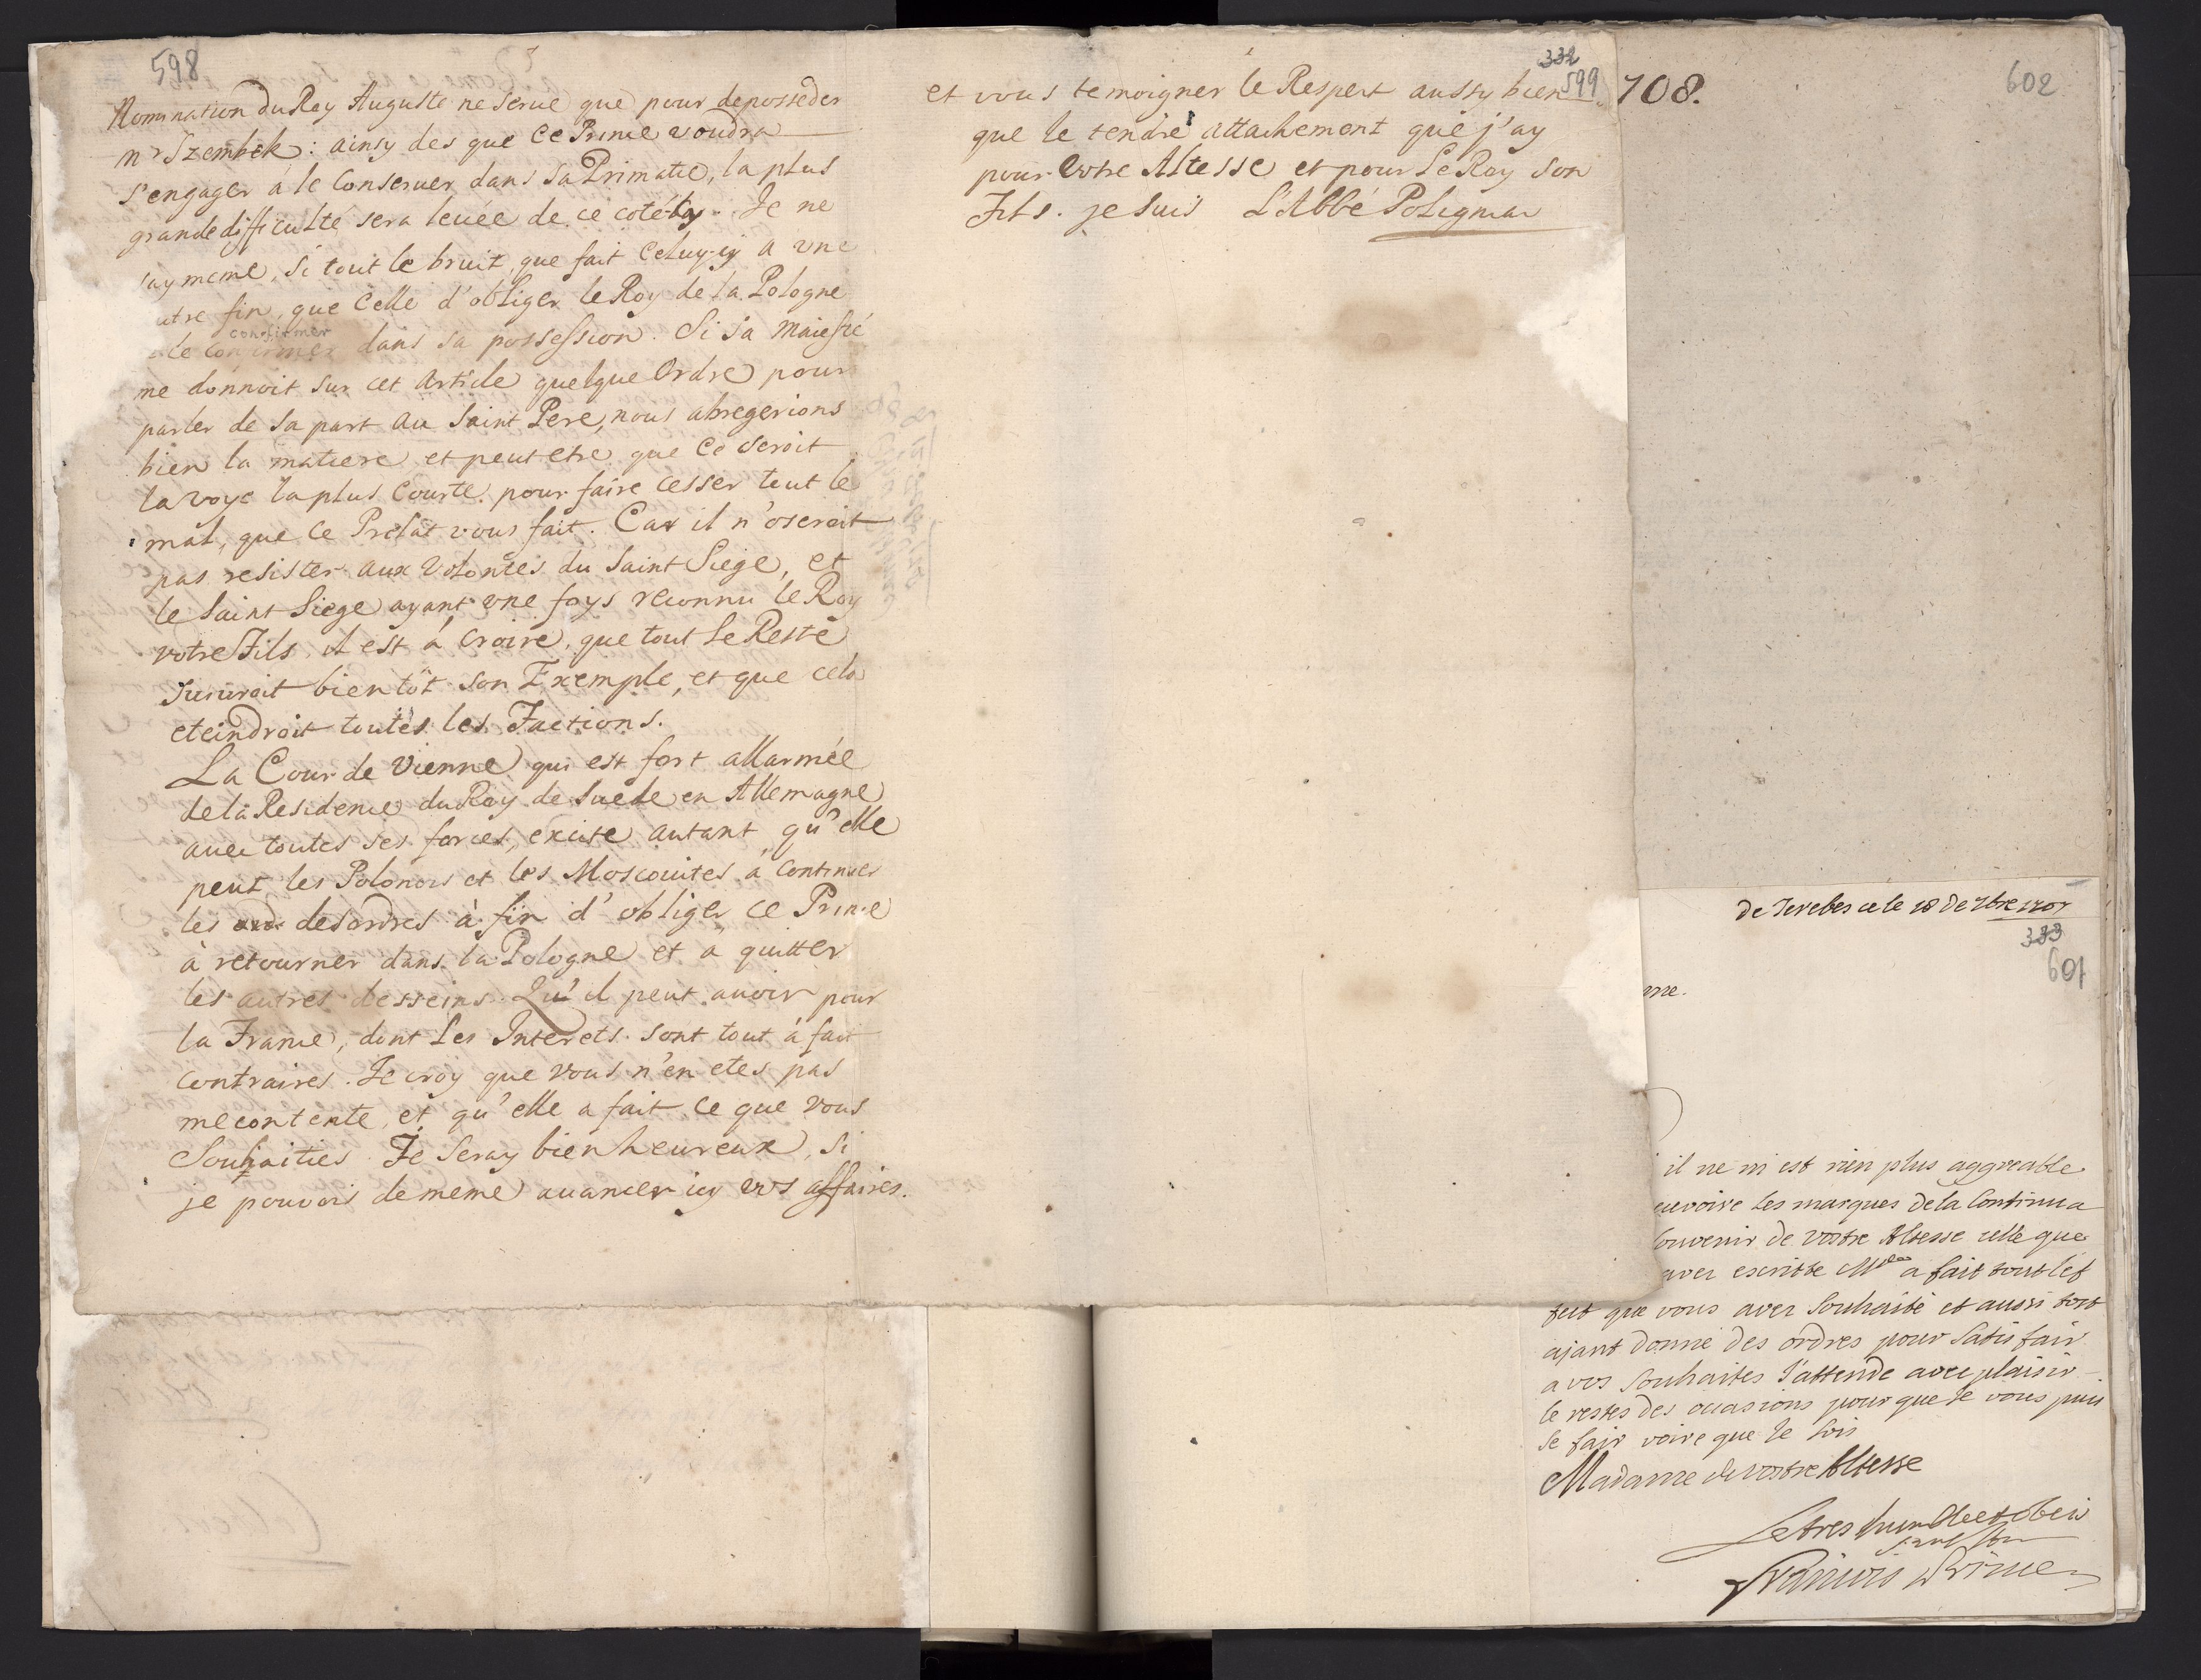 598
Nomination du Roy Auguste ne serue que pour deposseder
Mr Szembek: ainsy des que ce Prince voudra
s'engager à le Conseruer dans sa Primatie, la plus
grande difficulté sera leuée de ce coté-là. Je ne
say meme, si tout le bruit, que fait Celuy-cy a une
utre fin, que Celle d'obliger le Roy de la Pologne
confirmer
le confirmer dans sa possession. Si sa Maiesté
me donnoit sur cet Article quelque Ordre pour
parler de sa part au Saint Pere, nous abregerions
bien la matiere et peut etre que Ce seroit
la voye la plus Courte pour faire cesser tout le
mal, que ce Prelat vous fait. Car il n'oseroit
pas resister aux Volontés du Saint Siege, et
le Saint Siege ayant une foys reconnu le Roy
votre Fils, il est à croire, que tout le Reste
suiuroit bientôt son Exemple, et que cela
eteindroit toutes les Factions.
La Cour de Vienne qui est fort allarmée
de la Residence du Roy de Suede en Allemagne
auec toutes ses forces, excite autant, qu'elle
peut les Polonois et les Moscouites à Continuer
les desordres à fin d'obliger ce Prince
à retourner dans la Pologne et à quitter
les autres desseins Qu'il peut auoir pour
la France, dont les Interets sont tout à fait
contraires. Je croy que vous n'en etes pas
mecontente, et qu'elle a fait ce que vous
Souhaitiés. Je seray bien heureux, si
je pouvois de meme auancer icy vos affaires.
332
599
et vous temoigner le Respect aussy bien
que le tendre attachement que j'ay
pour Votre Altesse et pour le Roy son
Fils. je suis L'Abbé Polignac
708.
602
de Terebes ce le 18 de 7bre 1707
333
601
me.
il ne m est rien plus aggreable
euvoire les marques de la Continua
souvenir de vostre Altesse celle que
aver escritte Mda a fait tout lef
fect que vous aver souhaité et aussi tost
ajant donné des ordres pour satisfair
a vos souhaites J'attende avec plaisir
le restes des ocasions pour que Je vous puis
se fair voire que Je sois
Madame de vostre Altesse
Le tres humble et obeis
sant
François Prince